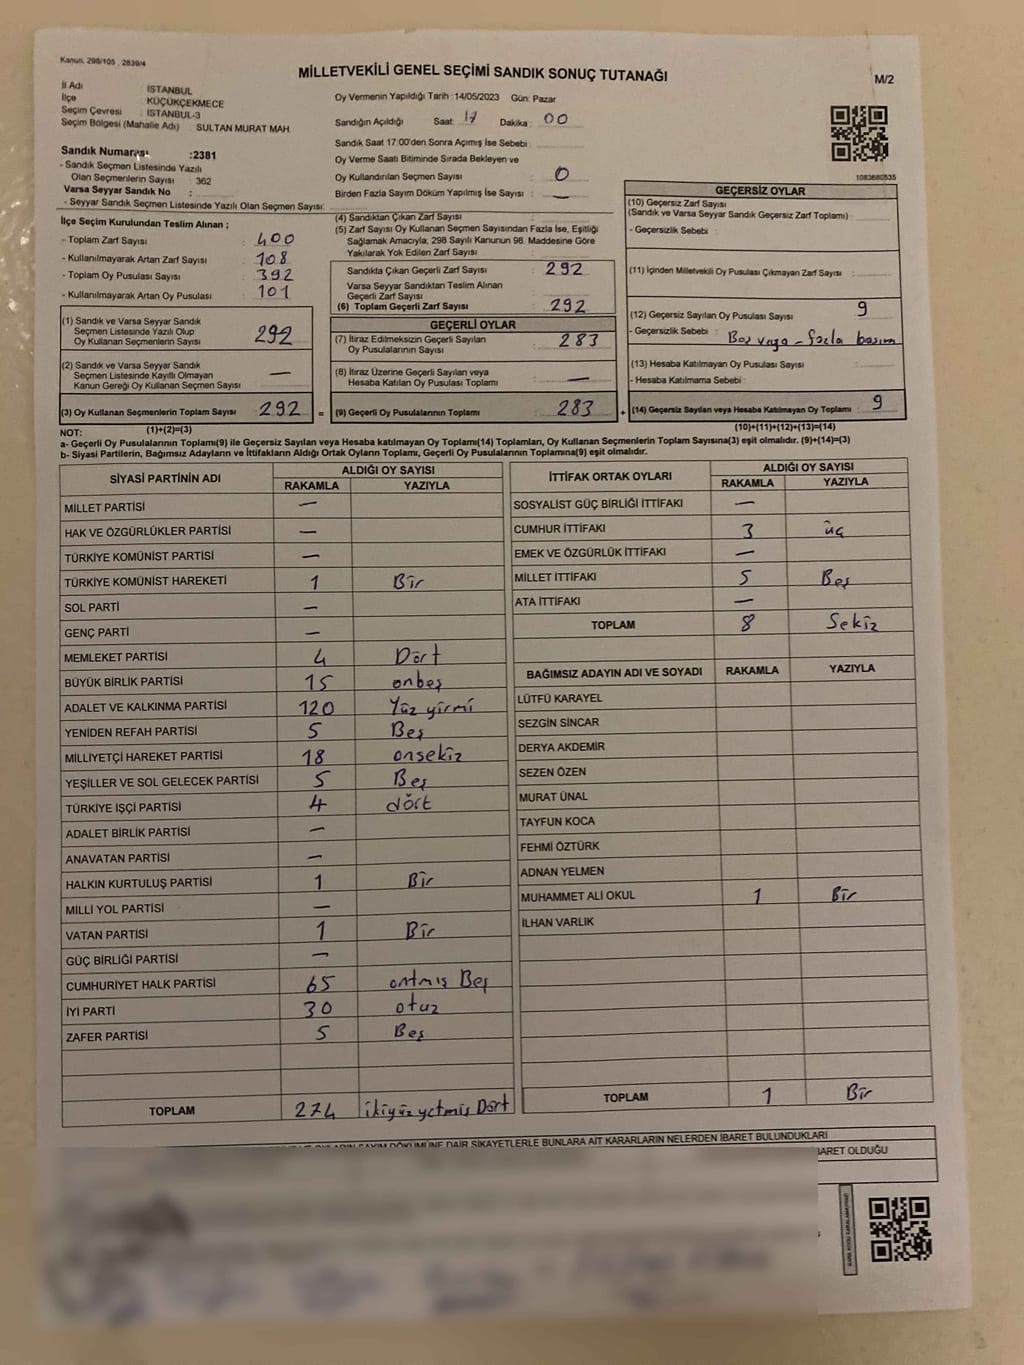 Kanun, 298/105 , 2839/4
MİLLETVEKİLİ GENEL SEÇİMİ SANDIK SONUÇ TUTANAĞI
M/2
İl Adı : İSTANBUL
İlçe : KÜÇÜKÇEKMECE
Seçim Çevresi : İSTANBUL-3
Seçim Bölgesi (Mahalle Adı) : SULTAN MURAT MAH.
Oy Vermenin Yapıldığı Tarih : 14/05/2023 Gün: Pazar
Sandığın Açıldığı Saat: 17 Dakika : 00
Sandık Saat 17:00'den Sonra Açımış İse Sebebi :
Oy Verme Saati Bitiminde Sırada Bekleyen ve
Oy Kullandırılan Seçmen Sayısı : 0
Birden Fazla Sayım Döküm Yapılmış İse Sayısı : —
Sandık Numarası :2381
- Sandık Seçmen Listesinde Yazılı
Olan Seçmenlerin Sayısı : 362
Varsa Seyyar Sandık No :
- Seyyar Sandık Seçmen Listesinde Yazılı Olan Seçmen Sayısı:
1083680535
İlçe Seçim Kurulundan Teslim Alınan ;
- Toplam Zarf Sayısı : 400
- Kullanılmayarak Artan Zarf Sayısı : 108
- Toplam Oy Pusulası Sayısı : 392
- Kullanılmayarak Artan Oy Pusulası : 101
(1) Sandık ve Varsa Seyyar Sandık
Seçmen Listesinde Yazılı Olup
Oy Kullanan Seçmenlerin Sayısı : 292
(2) Sandık ve Varsa Seyyar Sandık
Seçmen Listesinde Kayıtlı Olmayan
Kanun Gereği Oy Kullanan Seçmen Sayısı : —
(3) Oy Kullanan Seçmenlerin Toplam Sayısı : 292 =
(4) Sandıktan Çıkan Zarf Sayısı :
(5) Zarf Sayısı Oy Kullanan Seçmen Sayısından Fazla İse, Eşitliği
Sağlamak Amacıyla, 298 Sayılı Kanunun 98. Maddesine Göre
Yakılarak Yok Edilen Zarf Sayısı :
Sandıkta Çıkan Geçerli Zarf Sayısı : 292
Varsa Seyyar Sandıktan Teslim Alınan
Geçerli Zarf Sayısı :
(6) Toplam Geçerli Zarf Sayısı : 292
GEÇERLİ OYLAR
(7) İtiraz Edilmeksizin Geçerli Sayılan
Oy Pusulalarının Sayısı : 283
(8) İtiraz Üzerine Geçerli Sayılan veya
Hesaba Katılan Oy Pusulası Toplamı : —
(9) Geçerli Oy Pusulalarının Toplamı : 283 +
GEÇERSİZ OYLAR
(10) Geçersiz Zarf Sayısı
(Sandık ve Varsa Seyyar Sandık Geçersiz Zarf Toplamı) :
- Geçersizlik Sebebi :
(11) İçinden Milletvekili Oy Pusulası Çıkmayan Zarf Sayısı :
(12) Geçersiz Sayılan Oy Pusulası Sayısı : 9
- Geçersizlik Sebebi : Boş veya - fazla basım
(13) Hesaba Katılmayan Oy Pusulası Sayısı :
- Hesaba Katılmama Sebebi :
(14) Geçersiz Sayılan veya Hesaba Katılmayan Oy Toplamı : 9
NOT: (1)+(2)=(3)
(10)+(11)+(12)+(13)=(14)
a- Geçerli Oy Pusulalarının Toplamı(9) ile Geçersiz Sayılan veya Hesaba katılmayan Oy Toplamı(14) Toplamları, Oy Kullanan Seçmenlerin Toplam Sayısına(3) eşit olmalıdır. (9)+(14)=(3)
b- Siyasi Partilerin, Bağımsız Adayların ve İttifakların Aldığı Ortak Oyların Toplamı, Geçerli Oy Pusulalarının Toplamına(9) eşit olmalıdır.
SİYASİ PARTİNİN ADI ALDIĞI OY SAYISI
RAKAMLA YAZIYLA
MİLLET PARTİSİ —
HAK VE ÖZGÜRLÜKLER PARTİSİ —
TÜRKİYE KOMÜNİST PARTİSİ —
TÜRKİYE KOMÜNİST HAREKETİ 1 Bir
SOL PARTİ —
GENÇ PARTİ —
MEMLEKET PARTİSİ 4 Dört
BÜYÜK BİRLİK PARTİSİ 15 onbeş
ADALET VE KALKINMA PARTİSİ 120 Yüz yirmi
YENİDEN REFAH PARTİSİ 5 Beş
MİLLİYETÇİ HAREKET PARTİSİ 18 onsekiz
YEŞİLLER VE SOL GELECEK PARTİSİ 5 Beş
TÜRKİYE İŞÇİ PARTİSİ 4 dört
ADALET BİRLİK PARTİSİ —
ANAVATAN PARTİSİ —
HALKIN KURTULUŞ PARTİSİ 1 Bir
MİLLİ YOL PARTİSİ —
VATAN PARTİSİ 1 Bir
GÜÇ BİRLİĞİ PARTİSİ —
CUMHURİYET HALK PARTİSİ 65 Beş
İYİ PARTİ 30 otuz
ZAFER PARTİSİ 5 Beş
TOPLAM 274 ikiyüz yetmiş Dört
İTTİFAK ORTAK OYLARI ALDIĞI OY SAYISI
RAKAMLA YAZIYLA
SOSYALİST GÜÇ BİRLİĞİ İTTİFAKI —
CUMHUR İTTİFAKI 3 üç
EMEK VE ÖZGÜRLÜK İTTİFAKI —
MİLLET İTTİFAKI 5 Beş
ATA İTTİFAKI —
TOPLAM 8 Sekiz
BAĞIMSIZ ADAYIN ADI VE SOYADI RAKAMLA YAZIYLA
LÜTFÜ KARAYEL
SEZGİN SİNCAR
DERYA AKDEMİR
SEZEN ÖZEN
MURAT ÜNAL
TAYFUN KOCA
FEHMİ ÖZTÜRK
ADNAN YELMEN
MUHAMMET ALİ OKUL 1 Bir
İLHAN VARLIK
TOPLAM 1 Bir
SAYIM DÖKÜMÜNE DAİR ŞİKAYETLERLE BUNLARA AİT KARARLARIN NELERDEN İBARET BULUNDUKLARI
OLDUĞU